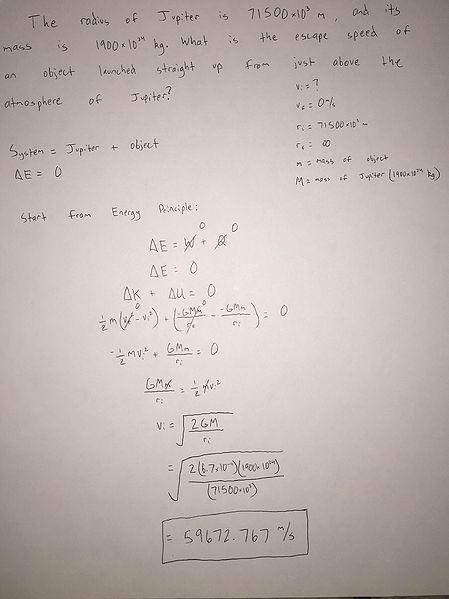 The radius of Jupiter is 71500x10³ m, and its
mass is 1900x10²⁴ kg. What is the escape speed of
an object launched straight up from just above the
atmosphere of Jupiter?
vi = ?
vf = 0 m/s
ri = 71500x10³ m
rf = ∞
m = mass of object
M = mass of Jupiter (1900x10²⁴ kg)
System = Jupiter + object
ΔE = 0
Start from Energy Principle:
ΔE = W⁰ + Q⁰
ΔE = 0
ΔK + ΔU = 0
½ m (vf²⁰ - vi²) + (-GMm/rf⁰ - -GMm/ri) = 0
-½ mvi² + GMm/ri = 0
GMm/ri = ½ mvi²
vi = √(2GM/ri)
= √(2(6.7x10⁻¹¹)(1900x10²⁴)/(71500x10³))
= 59672.767 m/s